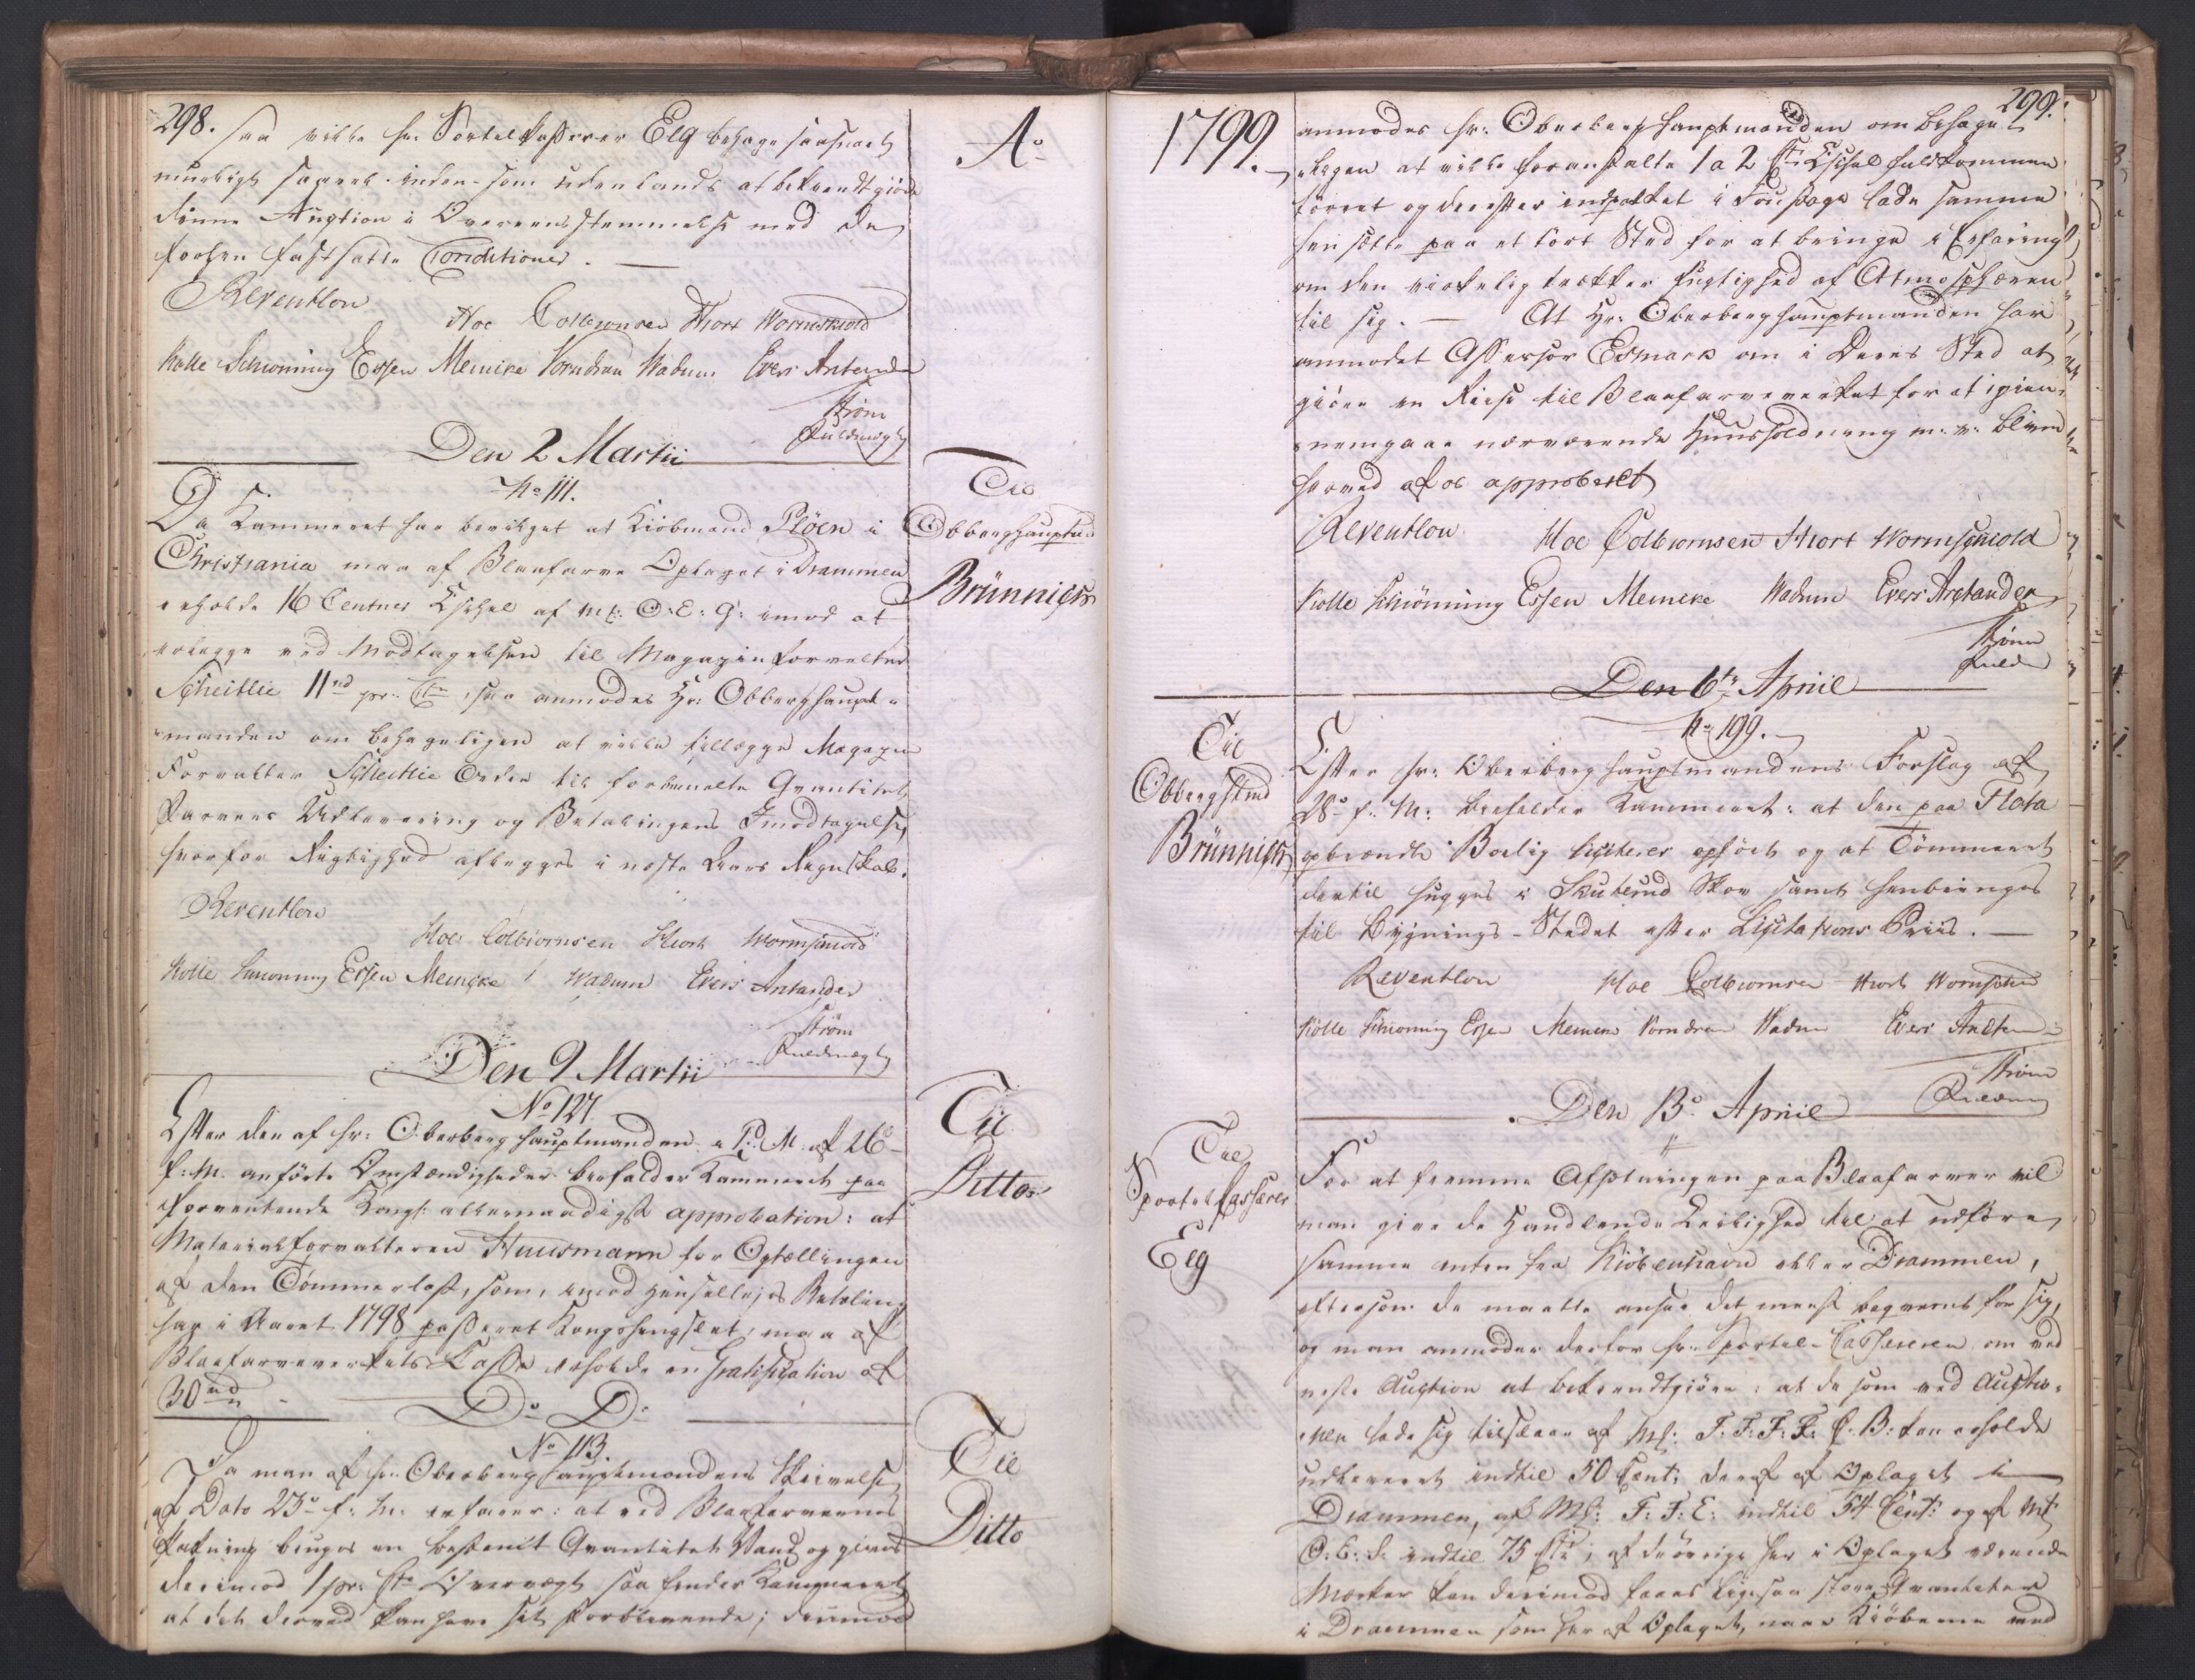 298.
saa ville hr. Sportelkasserer Elg behage saasnart
mueligt saavel inden- som udenlands at bekiendtgiøre
denne Auction i Overeensstemmelse med de
forhen fastsatte Conditioner.
Reventlow
Hoe Colbiørnsen Hiort Wormskiold
Kolle Schiønning Essen Meincke Vorndran Wadum Evers Antander
Strøm
Fuldmægtig
Den 2 Martii
No 111.
Da Kammeret har bevilget at Kiøbmand Plöen i
Christiania maa af Blaafarve Oplaget i Drammen
erholde 16 Centner Eschel af Mk: O: E: G: imod at
erlægge ved Modtagelsen til Magazinforvalter
Scheitlie 11 rd pr. Ctn, saa anmodes Hr: Obberghaupt-
manden om behageligen at ville tillægge Magazin
Forvalter Scheitlie Ordre til formeldte Qvantitet
Farves Udlevering og Betalingens Imodtagelse,
hvorfor Rigtighed aflægges i næste Aars Regnskab.
Reventlow
Hoe Colbiørnsen Hiort Wormskiold
Kolle Schiønning Essen Meincke Wadum Evers Antander
Strøm
Fuldmægtig
Den 9 Martii
No 127
Efter den af hr: Oberberghauptmanden i P: M. af 26de
f: M. anførte Omstændigheder bifalder Kammeret paa
forventende Kongl: allernaadigst approbation: at
Materialforvalteren Huusmann for Optællingen
af den Tømmerlast, som, imod Hensellejes Betaling
har i Aaret 1798 passeret Kongshengslet, maa af
Blaafarveverkets Cassa erholde en Gratification af
30 rd
Do Do
No 113.
Da man af hr: Oberberghauptmandens Skrivelse
af Dato 23de f: M. erfarer: at ved Blaafarvernes
Pakning bruges en bestemt Qvantitet Vand, og gives
derimod 1 pr: Ctn Overvægt saa finder Kammeret
at det derved kan have sit Forblivende; derimod
Ao
Til
Obberghauptmd
Brünnich
Til
Ditto
Til
Ditto
1799.
299.
anmodes hr: Oberberghauptmanden om behage-
ligen at ville foranstalte 1 a 2 Ctn Eschel fuldkommen
tørret og derefter indpakket i Foustage lade samme
hensætte paa et tørt Sted for at bringe i Erfaring
om den virkelig trækker fugtighed af Atmosphæren
til sig. — At Hr: Oberberghauptmanden har
anmodet Assessor Esmark om i Deres Sted at
giøre en Reise til Blaafarveverket for at igien-
nemgaae nærværende Huusholdning m: v: bliver
herved af os approberet
Reventlow Hoe Colbiørnsen Hiort Wormskiold
Kolle Schiønning Essen Meincke Wadum Evers Antander
Strøm
Fuldm
Den 6te April
No 199.
Til
Obbergh:md
Brünnich
Efter hr: Oberberghauptmandens Forslag af
28de f: M: bifalder Kammeret: at den paa Plota
opbrændte Bolig liciteres opført og at Tømmeret
dertil hugges i Skuterud Skov samt henbringes
til Bygnings-Stedet efter Licitations Priis. —
Reventlow Hoe Colbiørnsen Hiort Wormskiold
Kolle Schiønning Essen Meincke Vorndran Wadum Evers Antander
Strøm
Fuldm
Den 13de April
Til
Sportelkasserer
Elg
For at fremme Afsætningen paa Blaafarver vil
man give de Handlende Leilighed til at udføre
samme enten fra Kiøbenhavn eller Drammen,
eftersom de maatte ansee det meest beqvemt for sig,
og man anmoder derfor hr: Sportel-Casseren om ved
neste Auction at bekiendtgiøre: at de som ved Auctio-
nen lade sig tilslaae af Mk: F: F: F: F: C: B: kan erholde
udleveret indtil 50 Cent: deraf af Oplaget i
Drammen, af Mk: F: F: E: indtil 54 Cent: og af Mk:
O: C: indtil 75 Ctn, af de øvrige her i Oplaget værende
Mærker kan derimod faaes ligesaa store Qvantiteter
i Drammen som her af Oplaget, naar Kiøberne ved